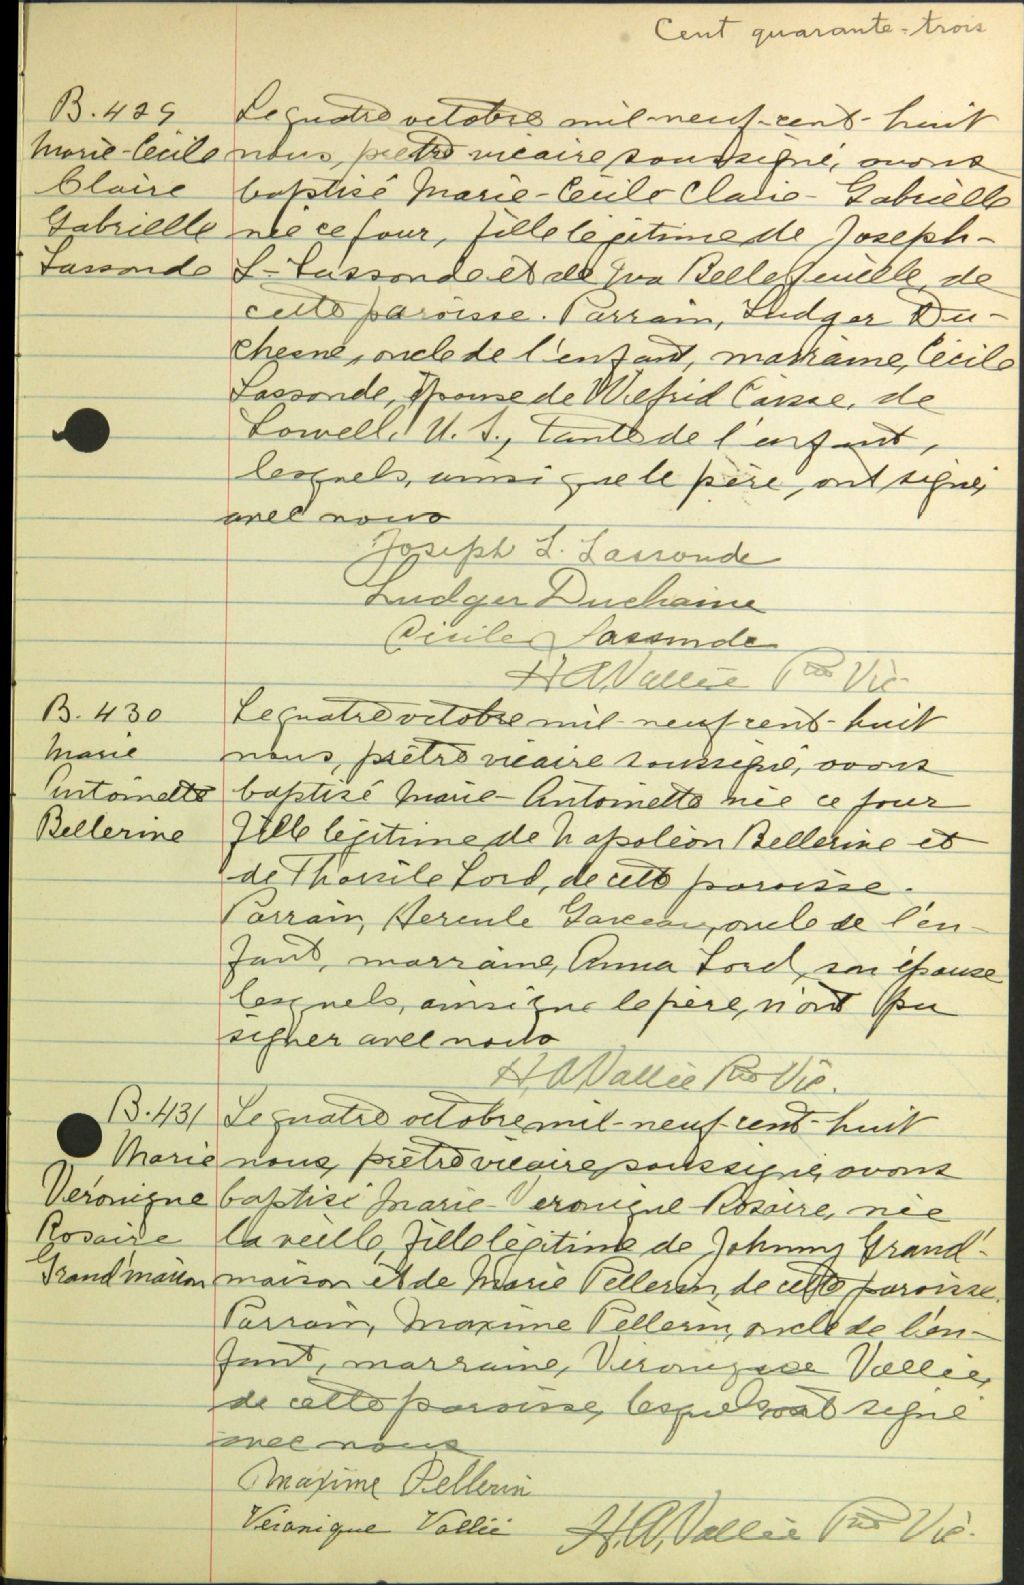 Cent quarante-trois
B. 429
Marie-Cécile
Claire
Gabrielle
Lassonde
Le quatre octobre mil-neuf-cent-huit
nous, prêtre vicaire soussigné, avons
baptisé Marie-Cécile Claire-Gabrielle
née ce jour, fille légitime de Joseph-
L-Lassonde et de Eva Bellefeuille, de
cette paroisse. Parrain, Ludger Du-
chesne, oncle de l'enfant, marraine, Cécile
Lassonde, épouse de Wilfrid Caisse, de
Lowell, U. S., tante de l'enfant,
lesquels, ainsi que le père, ont signé
avec nous
Joseph L. Lassonde
Ludger Duchaine
Cécile Lassonde
H A Vallée Ptre Vic-
B. 430
Marie
Antoinette
Bellerive
Le quatre octobre mil-neuf cent-huit
nous, prêtre vicaire soussigné, avons
baptisé Marie-Antoinette née ce jour
fille légitime de Napoléon Bellerive et
de Tharsile Lord, de cette paroisse.
Parrain, Hercule Garceau, oncle de l'en-
fant, marraine, Anna Lord, son épouse
lesquels, ainsi que le père, n'ont pu
signer avec nous
H. A. Vallée Ptre Vic.
B. 431
Marie
Véronique
Rosaire
Grand'maison
Le quatre octobre, mil-neuf-cent-huit
nous, prêtre vicaire, soussigné, avons
baptisé Marie-Véronique-Rosaire, née
la veille, fille légitime de Johnny Grand'-
maison et de Marie Pellerin, de cette paroisse.
Parrain, Maxime Pellerin, oncle de l'en-
fant, marraine, Véronique Vallée,
de cette paroisse, lesquels ont signé
avec nous
Maxime Pellerin
Véronique Vallée
H. A. Vallée Ptre Vic.